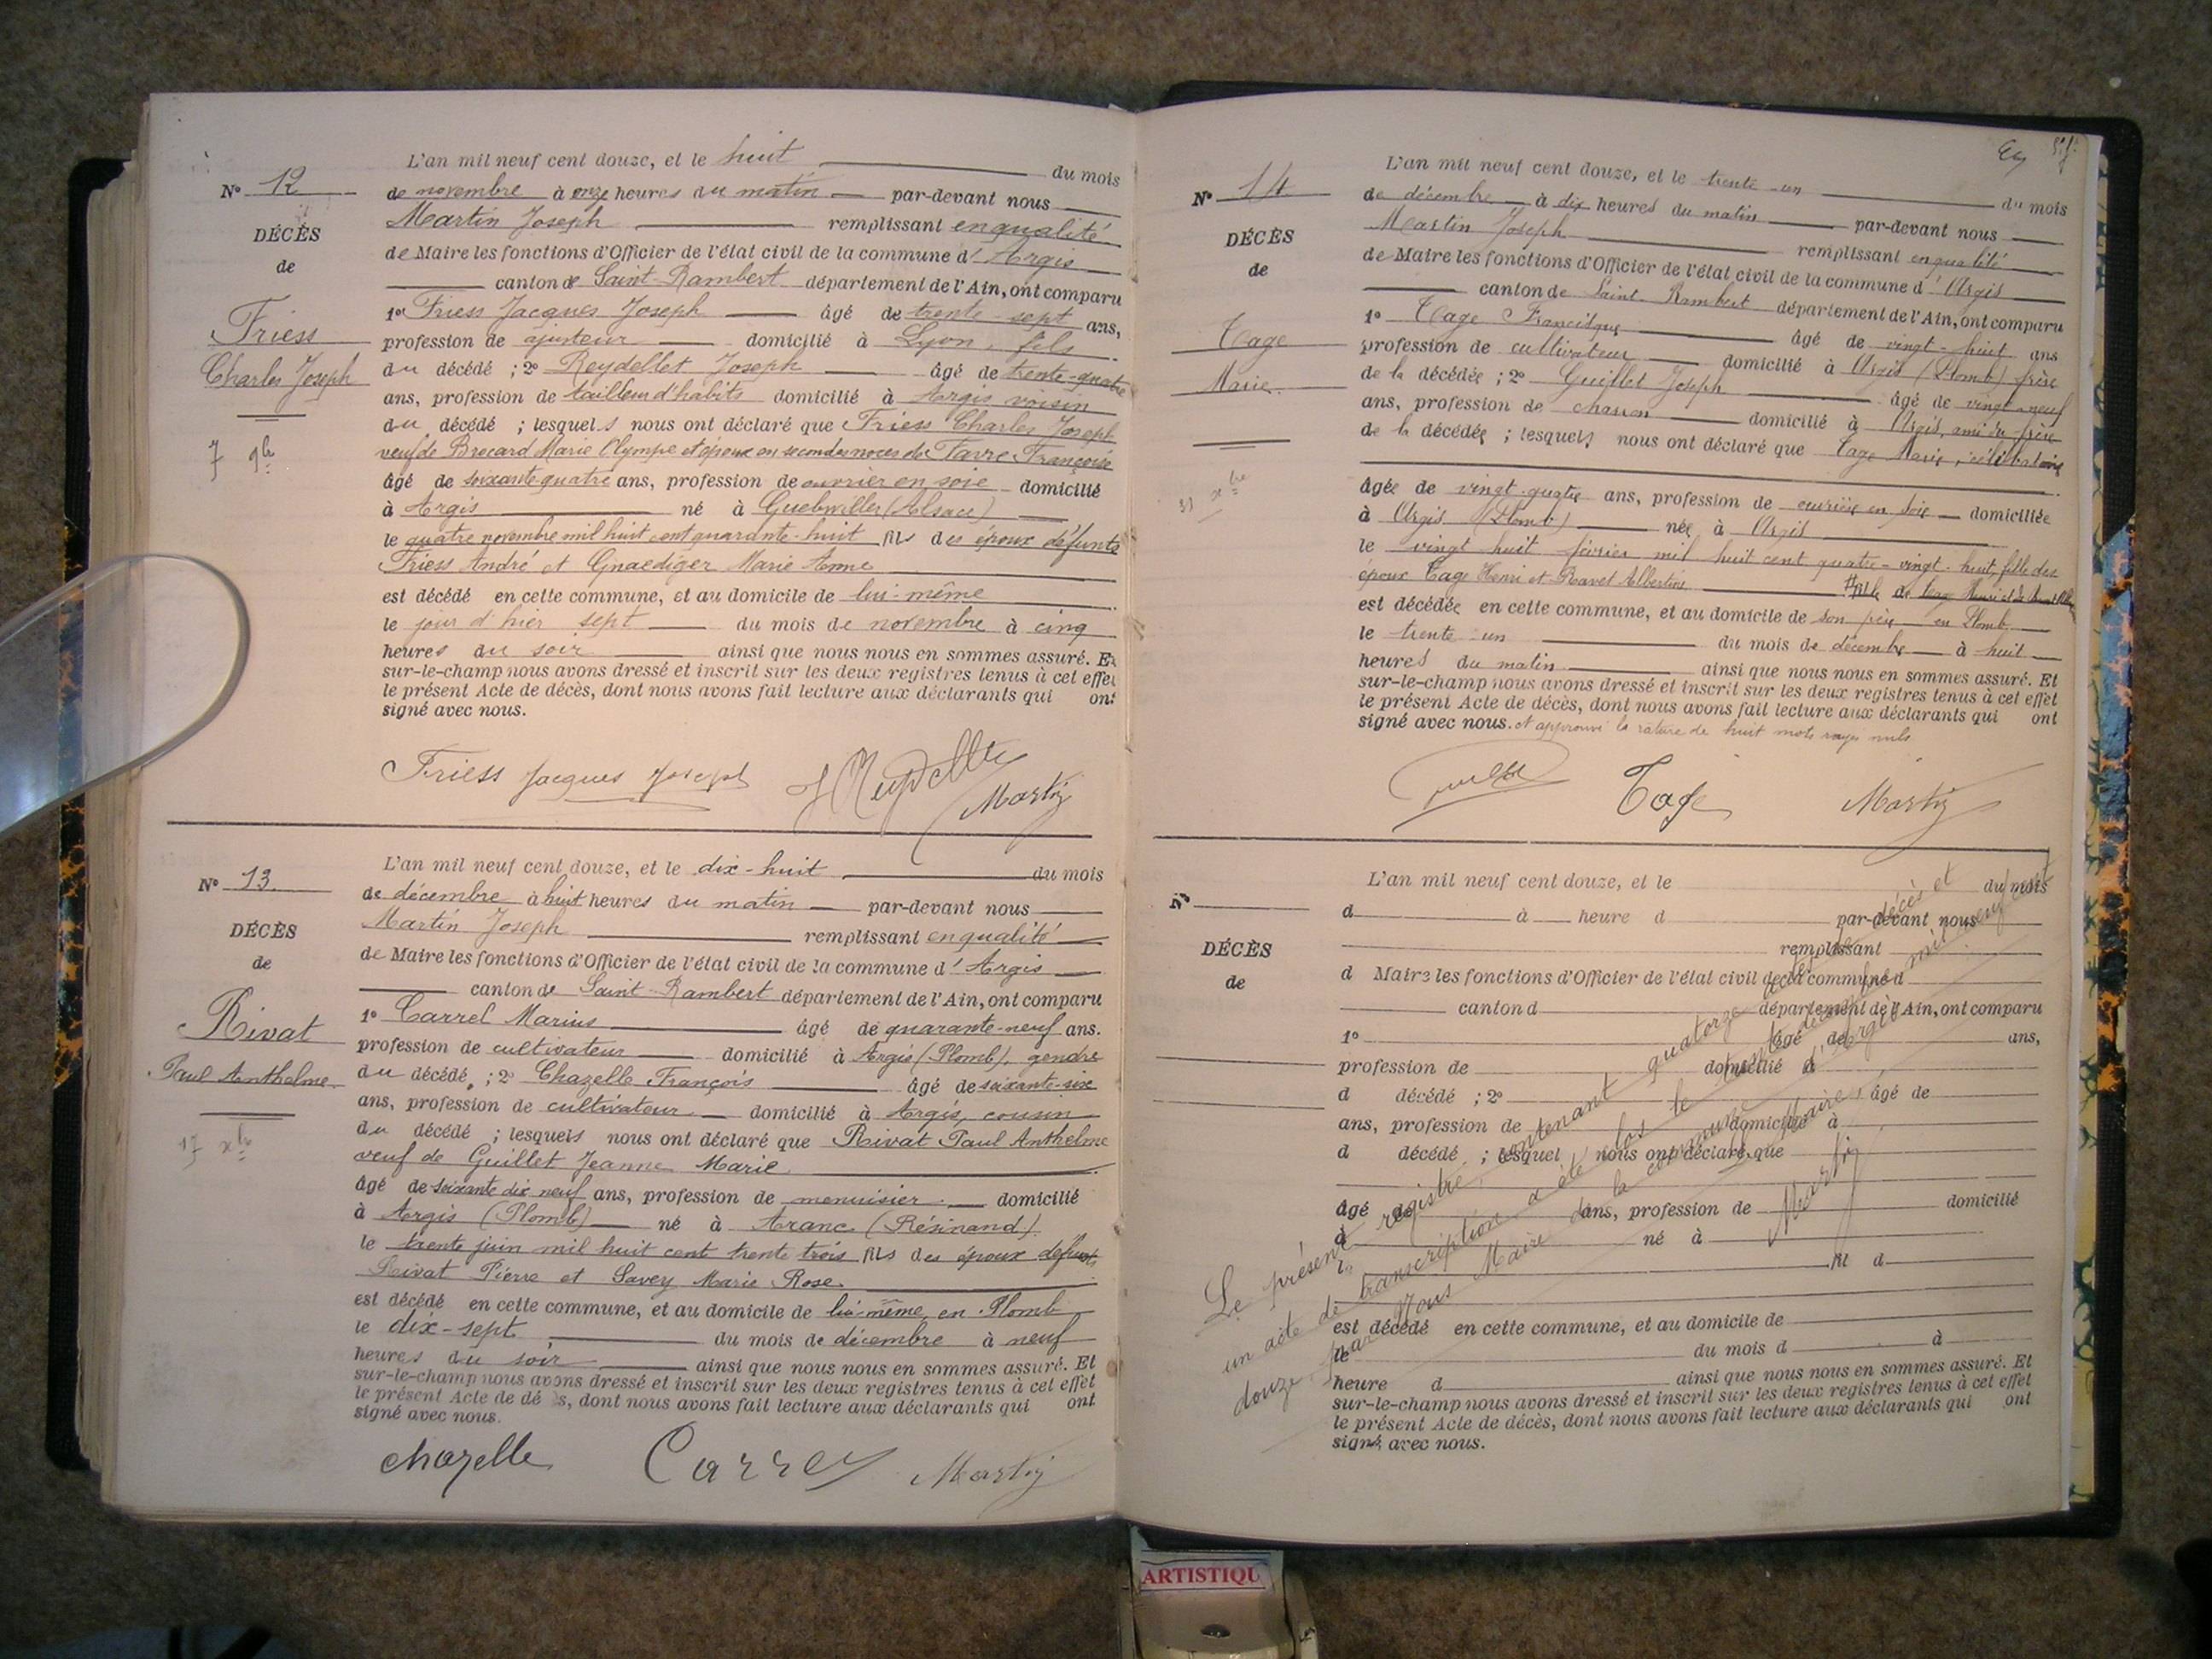 N° 12
DÉCÈS
de
Friess
Charles Joseph
7 9bre
L'an mil neuf cent douze, et le huit du mois
de novembre à onze heures du matin par-devant nous
Martin Joseph remplissant en qualité
de Maire les fonctions d'Officier de l'état civil de la commune d'Argis
canton de Saint-Rambert département de l'Ain, ont comparu
1° Friess Jacques Joseph âgé de trente-sept ans,
profession de ajusteur domicilié à Lyon, fils
du décédé ; 2° Reydellet Joseph âgé de trente-quatre
ans, profession de tailleur d'habits domicilié à Argis voisin
du décédé ; lesquels nous ont déclaré que Friess Charles Joseph
veuf de Brocard Marie Olympe et époux en secondes noces de Favre Françoise
âgé de soixante-quatre ans, profession de ouvrier en soie domicilié
à Argis né à Guebwiller (Alsace)
le quatre novembre mil huit cent quarante-huit fils des époux défunts
Friess André et Gnaediger Marie Anne
est décédé en cette commune, et au domicile de lui-même
le jour d'hier sept du mois de novembre à cinq
heures du soir ainsi que nous nous en sommes assuré. Et
sur-le-champ nous avons dressé et inscrit sur les deux registres tenus à cet effet
le présent Acte de décès, dont nous avons fait lecture aux déclarants qui ont
signé avec nous.
Friess Jacques Joseph
Martin
N° 13
DÉCÈS
de
Rivat
Paul Anthelme
17 xbre
L'an mil neuf cent douze, et le dix-huit du mois
de décembre à huit heures du matin par-devant nous
Martin Joseph remplissant en qualité
de Maire les fonctions d'Officier de l'état civil de la commune d'Argis
canton de Saint-Rambert département de l'Ain, ont comparu
1° Carrel Marius âgé de quarante-neuf ans.
profession de cultivateur domicilié à Argis (Plomb), gendre
du décédé ; 2° Chazelle François âgé de soixante-six
ans, profession de cultivateur domicilié à Argis, cousin
du décédé ; lesquels nous ont déclaré que Rivat Paul Anthelme
veuf de Guillet Jeanne Marie
âgé de soixante dix neuf ans, profession de menuisier domicilié
à Argis (Plomb) né à Aranc (Résinand)
le trente juin mil huit cent trente trois fils des époux défunts
Rivat Pierre et Savey Marie Rose
est décédé en cette commune, et au domicile de lui-même, en Plomb
le dix-sept du mois de décembre à neuf
heures du soir ainsi que nous nous en sommes assuré. Et
sur-le-champ nous avons dressé et inscrit sur les deux registres tenus à cet effet
le présent Acte de dé s, dont nous avons fait lecture aux déclarants qui ont
signé avec nous.
Chazelle Carrel Martin
N° 14
DÉCÈS
de
Tage
Marie
31 xbre
L'an mil neuf cent douze, et le trente-un du mois
de décembre à dix heures du matin par-devant nous
Martin Joseph remplissant en qualité
de Maire les fonctions d'Officier de l'état civil de la commune d'Argis
canton de Saint-Rambert département de l'Ain, ont comparu
1° Tage Francisque âgé de vingt-huit ans
profession de cultivateur domicilié à Argis (Plomb) frère
de la décédée ; 2° Guillet Joseph âgé de vingt-neuf
ans, profession de charron domicilié à Argis, ami du frère
de la décédée ; lesquels nous ont déclaré que Tage Marie, célibataire
âgée de vingt-quatre ans, profession de ouvrière en soie domiciliée
à Argis (Plomb) née à Argis
le vingt huit février mil huit cent quatre-vingt-huit, fille des
époux Tage Henri et Ravet Albertine
est décédée en cette commune, et au domicile de son père en Plomb
le trente-un du mois de décembre à huit
heures du matin ainsi que nous nous en sommes assuré. Et
sur-le-champ nous avons dressé et inscrit sur les deux registres tenus à cet effet
le présent Acte de décès, dont nous avons fait lecture aux déclarants qui ont
signé avec nous. et approuvé la rature de huit mots rayés nuls
Tage Martin
N°
DÉCÈS
de
L'an mil neuf cent douze, et le du mois
d à heure d par-devant nous
remplissant
d Maire les fonctions d'Officier de l'état civil de la commune d
canton d département de l'Ain, ont comparu
1° âgé de ans,
profession de domicilié à
d décédé ; 2° âgé de
ans, profession de domicilié à
d décédé ; lesquel nous ont déclaré que
âgé de ans, profession de domicilié
à né à
le fil d
est décédé en cette commune, et au domicile de
le du mois d à
heure d ainsi que nous nous en sommes assuré. Et
sur-le-champ nous avons dressé et inscrit sur les deux registres tenus à cet effet
le présent Acte de décès, dont nous avons fait lecture aux déclarants qui ont
signé avec nous.
Le présent registre, contenant quatorze actes de décès et
un acte de transcription a été clos le trente-un décembre mil neuf cent
douze, par Nous Maire de la commune d'Argis
Martin
ARTISTIQU